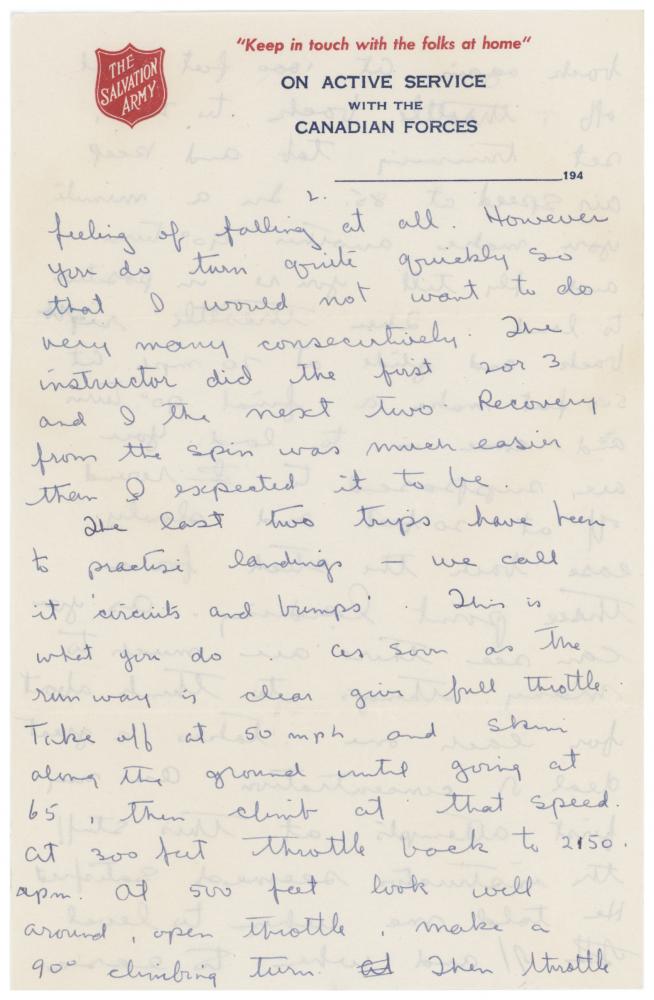 "Keep in touch with the folks at home"
THE
SALVATION
ARMY
ON ACTIVE SERVICE
WITH THE
CANADIAN FORCES
194
2.
feeling of falling at all. However
you do turn quite quickly so
that I would not want to do
very many consecutively. The
instructor did the first 2 or 3
and I the next two. Recovery
from the spin was much easier
than I expected it to be.
The last two trips have been
to practise landings - we call
it 'circuits and bumps'. This is
what you do. As soon as the
runway is clear give full throttle.
Take off at 50 mph and skim
along the ground until going at
65, then climb at that speed.
At 300 feet throttle back to 2150.
rpm. At 500 feet look well
around, open throttle, make a
90° climbing turn. Then throttle